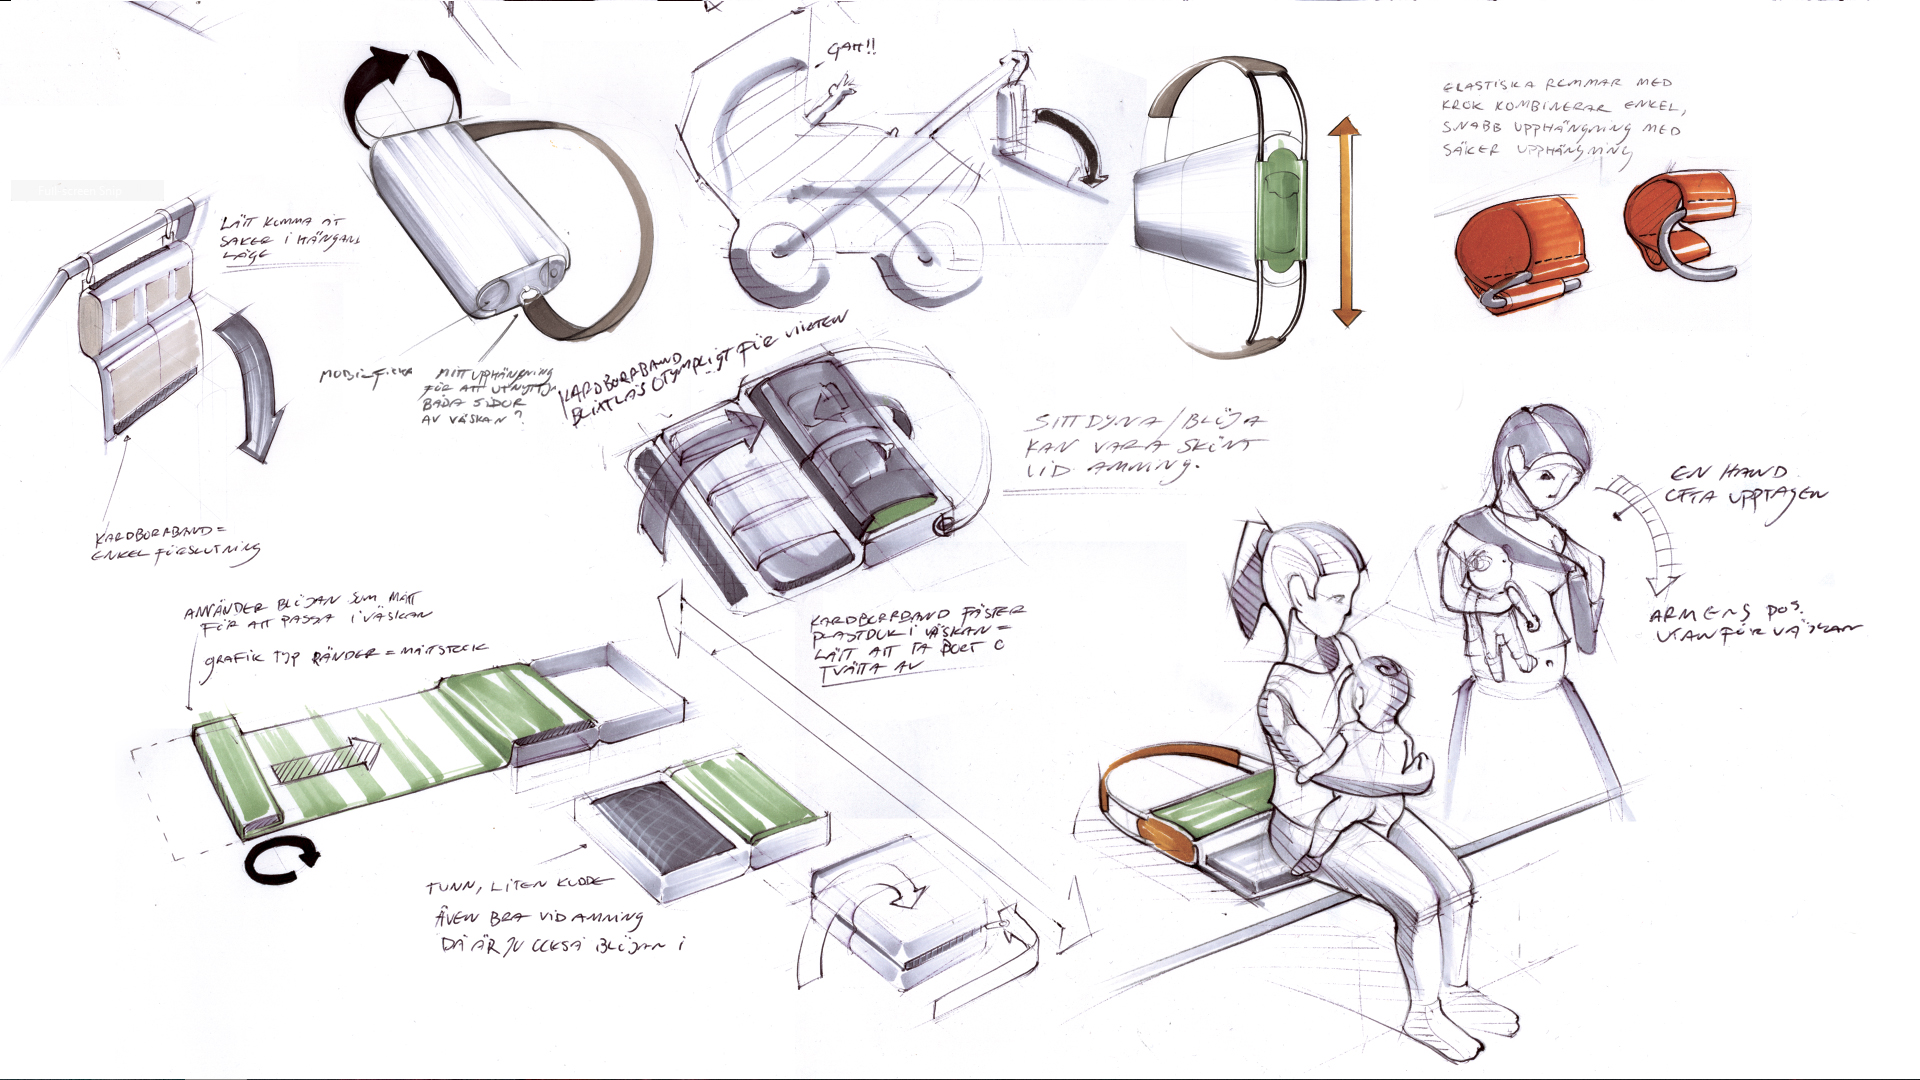 GAH!!
ELASTISKA REMMAR MED
KROK KOMBINERAR ENKEL,
SNABB UPPHÄNGNING MED
SÄKER UPPHÄNGNING
LÄTT KOMMA ÅT
SAKER I HÄNGANDE
LÄGE
MOBILFICKA
MITTUPPHÄNGNING
FÖR ATT UTNYTTJA
BÅDA SIDOR
AV VÄSKAN?
KARDBORRBAND
BLIXTLÅS OTYMPLIGT FÖR VIKTEN
SITTDYNA/BLÖJA
KAN VARA SKÖNT
VID AMNING.
EN HAND
OFTA UPPTAGEN
KARDBORRBAND =
ENKEL FÖRSLUTNING
ANVÄNDER BLÖJAN SOM MÅTT
FÖR ATT PASSA I VÄSKAN
GRAFIK TYP RÄNDER = MÅTTSTOCK
KARDBORRBAND FÄSTER
PLASTDUK I VÄSKAN =
LÄTT ATT TA BORT O
TVÄTTA AV
ARMENS POS.
UTANFÖR VÄSKAN
TUNN, LITEN KUDDE
ÄVEN BRA VID AMNING
DÅ ÄR JU OCKSÅ BLÖJAN I